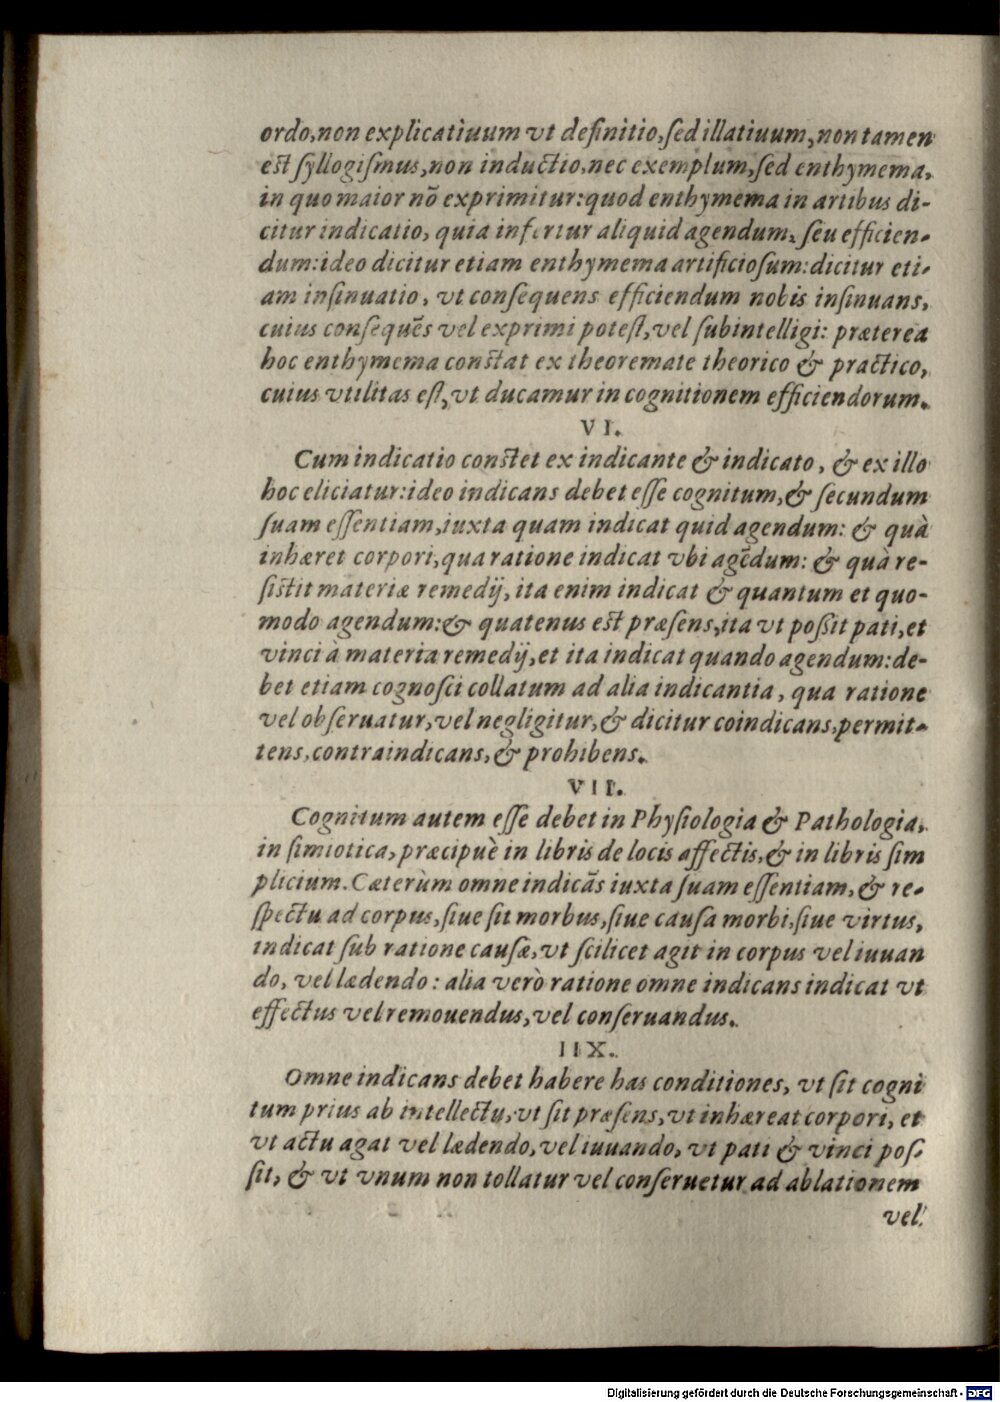 ordo, non explicatiuum vt definitio, ſed illatiuum, non tamen
eſt ſyllogiſmus, non inductio, nec exemplum, ſed enthymema,
in quo maior nō exprimitur: quod enthymema in artibus di-
citur indicatio, quia infertur aliquid agendum, ſeu efficien-
dum: ideo dicitur etiam enthymema artificioſum: dicitur eti-
am inſinuatio, vt conſequens efficiendum nobis inſinuans,
cuius conſequēs vel exprimi poteſt, vel ſubintelligi: præterea
hoc enthymema conſtat ex theoremate theorico & practico,
cuius vtilitas eſt, vt ducamur in cognitionem efficiendorum.
VI.
Cum indicatio conſtet ex indicante & indicato, & ex illo
hoc eliciatur: ideo indicans debet eſſe cognitum, & ſecundum
ſuam eſſentiam, iuxta quam indicat quid agendum: & quà
inhæret corpori, qua ratione indicat vbi agēdum: & quà re-
ſiſtit materiæ remedij, ita enim indicat & quantum et quo-
modo agendum: & quatenus eſt præſens, ita vt poſſit pati, et
vinci à materia remedij, et ita indicat quando agendum: de-
bet etiam cognoſci collatum ad alia indicantia, qua ratione
vel obſeruatur, vel negligitur, & dicitur coindicans, permit-
tens, contraindicans, & prohibens.
VII.
Cognitum autem eſſe debet in Phyſiologia & Pathologia,
in ſimiotica, præcipuè in libris de locis affectis, & in libris ſim
plicium. Cæterùm omne indicās iuxta ſuam eſſentiam, & re-
ſpectu ad corpus, ſiue ſit morbus, ſiue cauſa morbi, ſiue virtus,
indicat ſub ratione cauſæ, vt ſcilicet agit in corpus vel iuuan
do, vel lædendo: alia verò ratione omne indicans indicat vt
effectus vel remouendus, vel conſeruandus.
IIX.
Omne indicans debet habere has conditiones, vt ſit cogni
tum prius ab intellectu, vt ſit præſens, vt inhæreat corpori, et
vt actu agat vel lædendo, vel iuuando, vt pati & vinci poſ-
ſit, & vt vnum non tollatur vel conſeruetur ad ablationem
vel
Digitalisierung gefördert durch die Deutsche Forschungsgemeinschaft - DFG